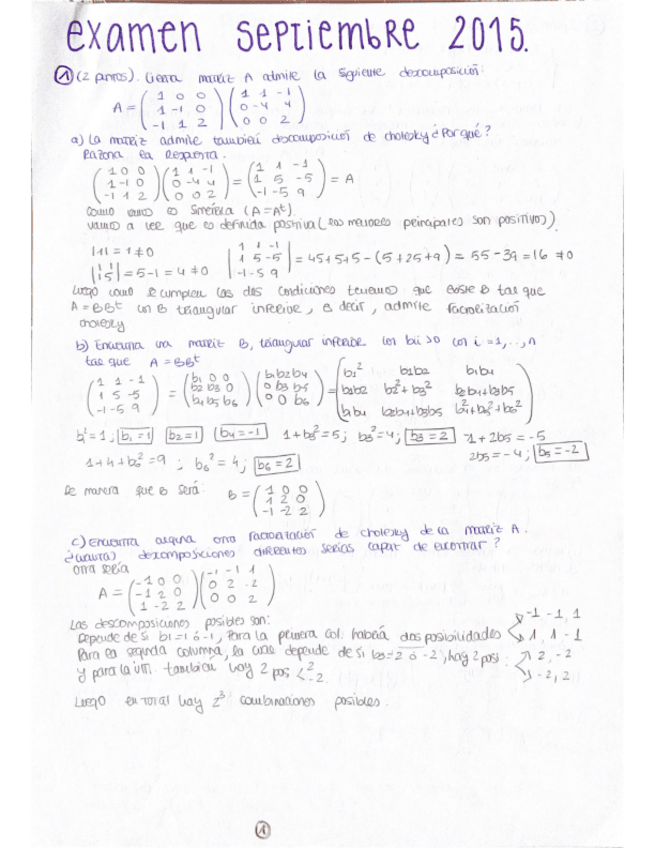 examen septiembre 2015.
① (2 puntos). Cierta matriz A admite la siguiente descomposición:
A = ( 1 0 0 / 1 -1 0 / -1 1 2 ) ( 1 1 -1 / 0 -4 4 / 0 0 2 )
a) La matriz admite también descomposición de cholesky ¿Por qué?
Razona la respuesta.
( 1 0 0 / 1 -1 0 / -1 1 2 ) ( 1 1 -1 / 0 -4 4 / 0 0 2 ) = ( 1 1 -1 / 1 5 -5 / -1 -5 9 ) = A
como vemos es simétrica (A=Aᵗ).
vamos a ver que es definida positiva (los menores principales son positivos).
|1| = 1 ≠ 0
| 1 1 / 1 5 | = 5-1 = 4 ≠ 0
| 1 1 -1 / 1 5 -5 / -1 -5 9 | = 45+5+5-(5+25+9) = 55-39 = 16 ≠ 0
Luego como se cumplen las dos condiciones tenemos que existe B tal que
A = BBᵗ con B triangular inferior, es decir, admite factorización
cholesky
b) Encuentra una matriz B, triangular inferior con bii>0 con i=1,...,n
tal que A = BBᵗ
( 1 1 -1 / 1 5 -5 / -1 -5 9 ) = ( b1 0 0 / b2 b3 0 / b4 b5 b6 ) ( b1 b2 b4 / 0 b3 b5 / 0 0 b6 ) = ( b1² b1b2 b1b4 / b2b2 b2²+b3² b2b4+b3b5 / b1b4 b2b4+b3b5 b4²+b5²+b6² )
b1² = 1; b1=1 b2=1 b4=-1 1+b3²=5; b3²=4; b3=2 -1+2b5=-5
2b5=-4; b5=-2
1+4+b6²=9; b6²=4; b6=2
De manera que B será: B = ( 1 0 0 / 1 2 0 / -1 -2 2 )
c) Encuentra alguna otra factorización de cholesky de la matriz A.
¿Cuántas descomposiciones diferentes serías capaz de encontrar?
otra sería
A = ( -1 0 0 / -1 2 0 / 1 -2 2 ) ( -1 -1 1 / 0 2 -2 / 0 0 2 )
Las descomposiciones posibles son:
Depende de si b1=1 ó -1, para la primera col. habrá dos posibilidades -1 -1, 1
1, 1, -1
Para la segunda columna, la cual depende de si b3=2 ó -2, hay 2 posi: 2, -2
-2, 2
y para la últ. también hay 2 pos 2
-2.
Luego en total hay 2³ combinaciones posibles.
①